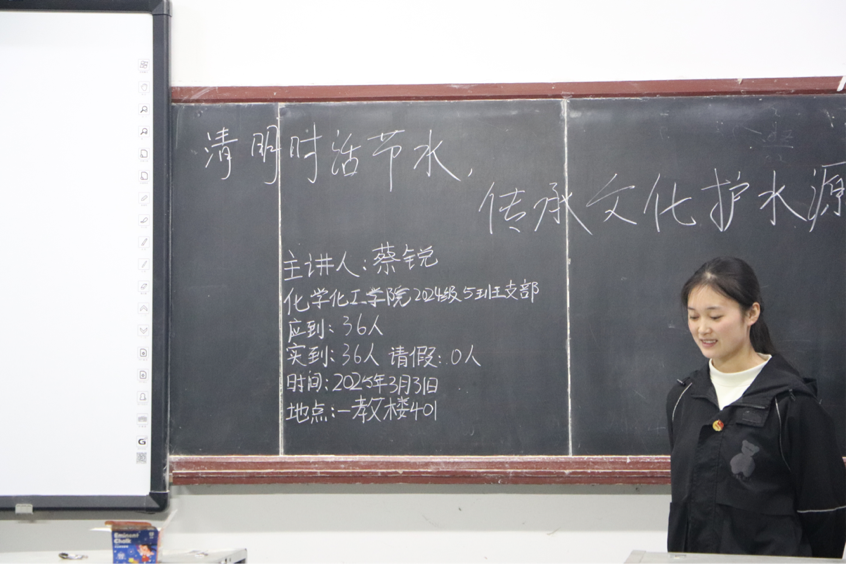 清明时活节水，
传承文化护水源
主讲人：蔡锐
化学化工学院2024级5班团支部
应到：36人
实到：36人 请假：0人
时间：2025年3月31日
地点：一教楼401
Chalk